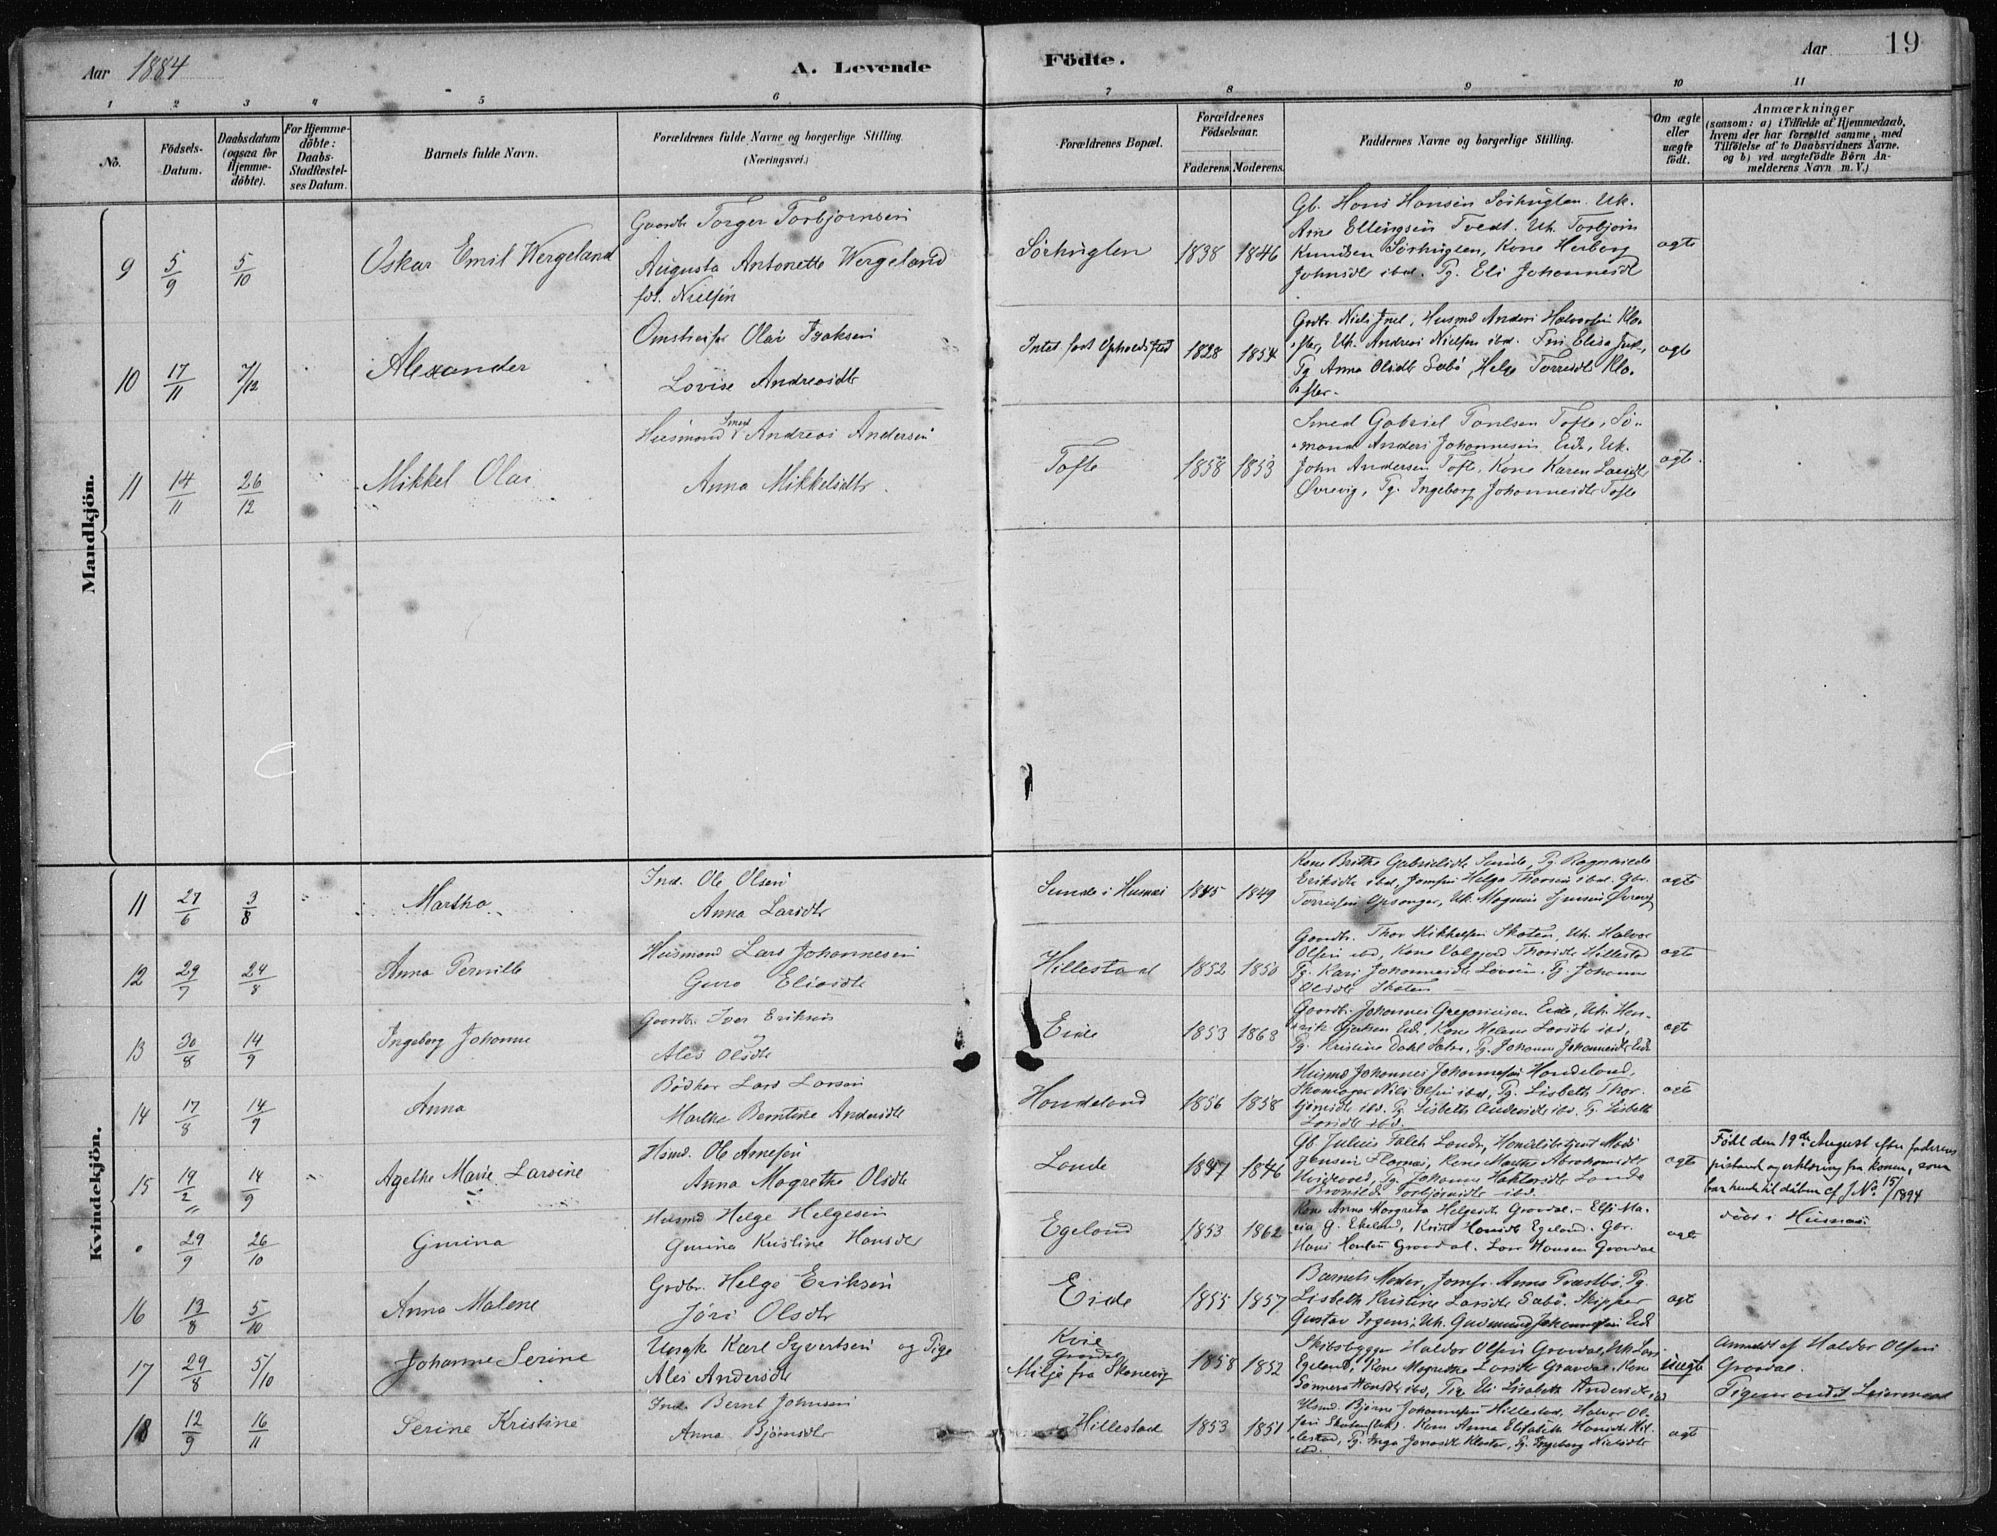 Aar 1884
A. Levende
Födte.
Aar
19
1 2 3 4 5 6 7 8 9 10 11
No.
Födsels-
Datum.
Daabsdatum
(ogsaa for
Hjemme-
döbte).
For Hjemme-
döbte:
Daabs-
Stadfæstel-
ses Datum.
Barnets fulde Navn.
Forældrenes fulde Navne og borgerlige Stilling.
(Næringsvei.)
Forældrenes Bopæl.
Forældrenes
Födselsaar.
Faderens. Moderens.
Faddernes Navne og borgerlige Stilling.
Om ægte
eller
uægte
födt.
Anmærkninger
(saasom: a) i Tilfælde af Hjemmedaab,
hvem der har forrettet samme, med
Tilföielse af to Daabsvidners Navne.
og b) ved uægtefödte Börn An-
melderens Navn m. V.)
Mandkjön.
9 5/9 5/10 Oskar Emil Wergeland
Gaardbr Torger Torbjornsen
Augusta Antonette Wergeland
fdt. Nielsen
Sörhuglen 1838 1846
Gb. Hans Hansen Sörhuglen. Uk.
Arne Ellingsen Tvedt. Uk. Torbjörn
Knudsen Sörhuglen, Kone Herborg
Johnsdtr ibd. Pg. Eli Johannesdtr
ægte
10 17/11 7/12 Alexander
Omstreifer Olai Isaksen
Lovise Andreasdtr
Intet fast Opholdssted 1828 1854
Grdbr. Niels Juel, Husmd Anders Halvorsen Klo-
ster, Uk. Andreas Nielsen ibd. Elisa Juel,
Pg Anna Olsdtr Sæbö, Helge Torresdtr Klo-
ster.
ægte
11 14/11 26/12 Mikkel Olai
Husmand Smed Andreas Andersen
Anna Mikkelsdtr.
Tofte 1858 1853
Smed Gabriel Paulsen Tofte, Sö-
mand Anders Johannesen Eide, Uk.
John Andersen Tofte, Kone Karen Larsdtr
Övrevig, Pg. Ingeborg Johannesdtr Tofte
ægte.
Kvindekjön.
11 27/6 3/8 Martha
Ind. Ole Olsen
Anna Larsdtr
Sunde i Husnæs 1845 1849
Kone Brithe Gabrielsdtr Sunde, Pg. Ragnhilde
Eriksdtr ibd, Jomfru Helga Thorsen ibd. Gbr.
Torris Opsanger, Uk. Magnus Övrevig
ægte
12 29/7 24/8 Anna Pernille
Husmand Lars Johannesen
Guro Eliasdtr
Hillestad 1852 1850
Gaardbr. Thor Mikkelsen Skaten, Uk. Halvor
Olsen ibd, Kone Valgjerd Thorsdtr Hillestad
Pg. Kari Johannesdtr Pg. Johanne
Olsdtr Skaten
ægte
13 30/8 14/9 Ingeborg Johanne
Gaardbr. Iver Eriksen
Ales Olsdtr
Eide 1853 1863
Gaardbr. Johannes Gregoriusen Eide, Uk. Hen-
rik Eide, Kone Helene Larsdtr ibd,
Pg. Kristine Dahl Sæbö, Pg. Johanne Johannesdtr Eide
ægt
14 17/8 14/9 Anna
Bödker Lars Larsen
Marthe Berntine Andersdtr
Handeland 1856 1858
Husmd Johannes Johannesen Handeland,
Skomager Nils Olsen ibd, Pg. Lisbeth Thor-
björnsdtr ibd. Pg. Lisbeth Andersdtr ibd. Pg. Lisbeth
Larsdtr ibd.
ægt
15 19/2 14/9 Agethe Marie Larsine
Hsmd. Ole Arnesen
Anna Magrethe Olsdtr
Lande 1847 1846
Gb Julius Falch Lande, Handelsbetjent
Jensen Flornæs, Kone Marthe Abrahamsdtr
Pg. Johanne Haktorsdtr Lande
Torbjörnsdtr ibd.
ægte
Födt den 19de August efter faderens
paastand og erklæring fra konen, som
bar hende til dåben cf J No 15/1894
29/9 26/10 Gurina
Husmd Helge Helgesen
Gurina Kristine Hansdtr
Egeland 1853 1862
Kone Anna Margreta Helgesdtr Gravdal. Elsi Ma-
ria G. Ekeland, Kristi Hansdtr Egeland. Gbr.
Hans Hansen Gravdal. Lars Hansen Gravdal
ægt
döbt i Husnæs
16 13/8 5/10 Anna Malene
Grdbr. Helge Eriksen
Jöri Olsdtr
Eide 1855 1857
Barnets Moder, Jomfr. Anna Præstbö, Pg.
Lisbeth Kristine Larsdtr Sæbö. Skipper
Gustav Irgens, Uk. Gudmund Johannesen Eide
ægt
17 29/8 5/10 Johanne Serine
Ungk Karl Syvertsen og Pige
Ales Andersdtr
Kvie
Gravdal
Milje fra Skonevig 1858 1852
Skibsbygger Haldor Olsen Gravdal, Uk Lars
Egeland, Kone Magrethe Larsdtr Gravdal. Kone
Gonners Hansdtr ibd, Pig Eli Lisabeth Andersdtr ibd
uægte
Anmeldt af Haldor Olsen
Gravdal.
Pigens andet Leiermaal
18 12/9 16/11 Serine Kristine
Ind. Bernt Johnsen
Anna Björnsdtr
Hillestad 1853 1851
Hsmd. Björne Johannesen Hillestad, Halvor Ol-
sen Skaten (Uk). Kone Anna Elisabeth Hansdtr Hil-
lestad, Pg. Inga Jonasdtr Kloster, Pg. Ingeborg Nielsdtr
ibd.
ægt